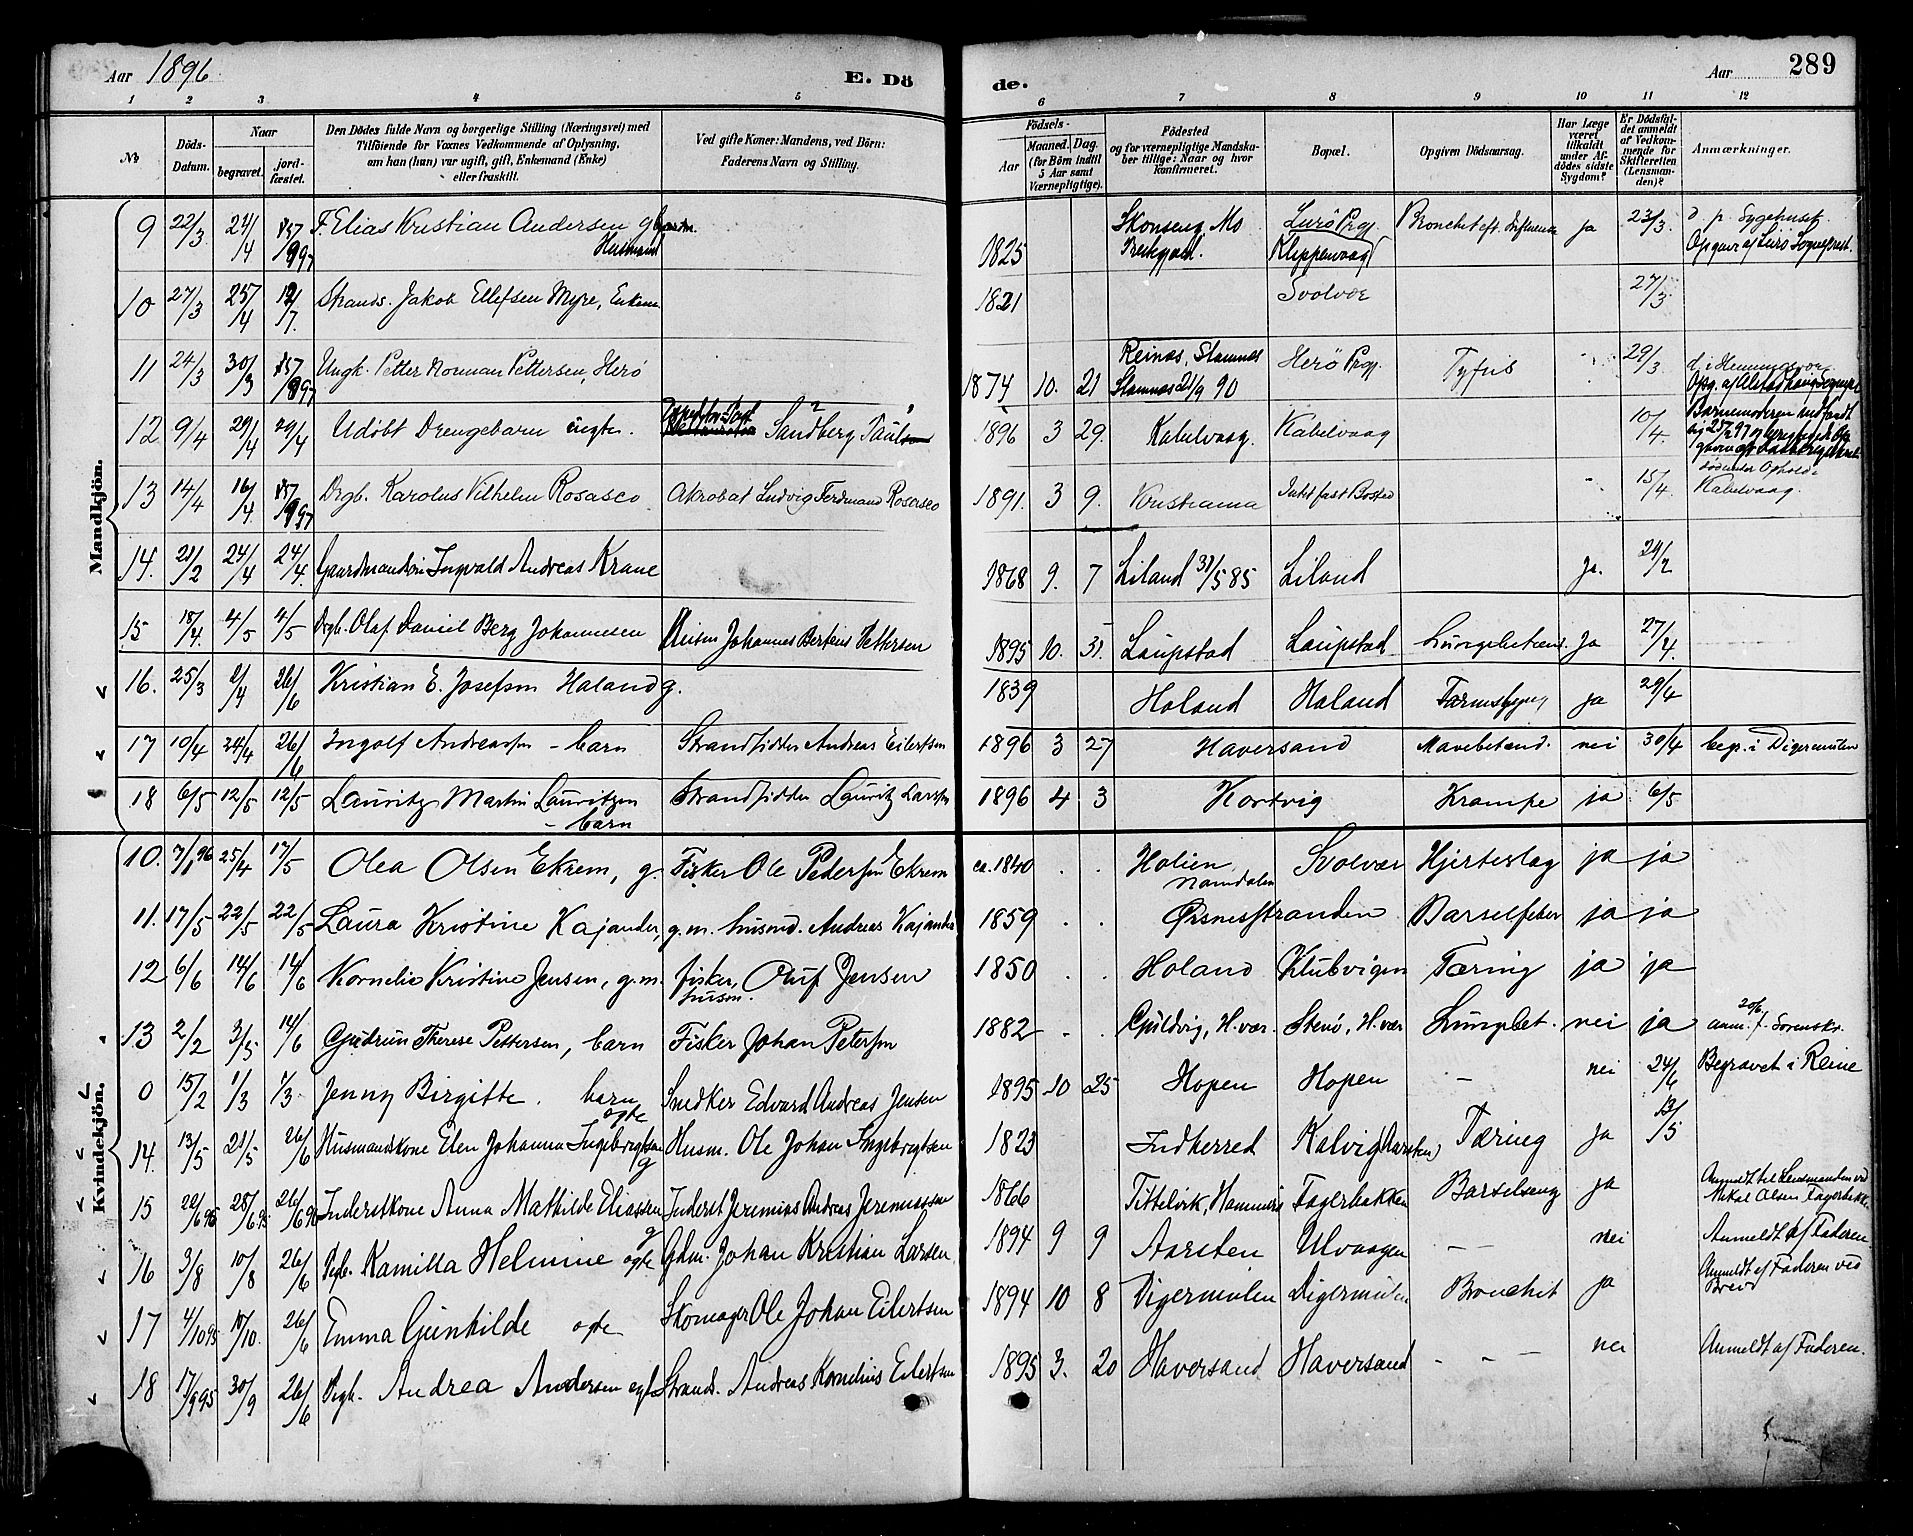 Aar 1896
E. Dö
de.
Aar
289
1 2 3 4 5 6 7 8 9 10 11 12
№
Döds-Datum.
Naar
begravet.
jord-fæstet.
Den Dödes fulde Navn og borgerlige Stilling (Næringsvei) med
Tilföiende for Voxnes Vedkommende af Oplysning,
om han (hun) var ugift, gift, Enkemand (Enke)
eller fraskilt.
Ved gifte Koner: Mandens, ved Börn:
Faderens Navn og Stilling.
Födsels-
Aar
Maaned. Dag.
(for Börn indtil
5 Aar samt
Værnepligtige).
Födested
og for værnepligtige Mandska-
ber tillige: Naar og hvor
konfirmeret.
Bopæl.
Opgiven Dödsaarsag.
Har Læge
været
tilkaldt
under Af-
dödes sidste
Sygdom?
Er Dödsfal-
det anmeldt
af Vedkom-
mende for
Skifteretten
(Lensman-
den)?
Anmærkninger.
Mandkjön.
9 22/3 24/4 F. Elias Kristian Andersen g Husmand 1825 Skonseng, Mo Lurö Prgj. Klippenvaag Bronchit eft. Influenza ja 23/3. d. p. Sygehuset. Opgave af Lurö Sogneprest.
10 27/3 25/4 12/7. Strands. Jakob Ellefsen Myre, Enkem 1821 Svolvær 27/3
11 24/3 30/3 Ungk. Petter Norman Pettersen, Herö 1874 10. 21 Reinæs, Stamnes Stamnes 21/9 90 Herö Prgj. Tyfus 29/3 d. i Henningsvær
12 9/4 29/4 29/4 Udöbt Drengebarn uægte. Sandberg 1896 3 29. Kabelvaag. Kabelvaag 10/4. Barnemoderen indfandt
13 14/4 16/4. Drgb. Karolus Vilhelm Rosasco Akrobat Ludvig Ferdinand Rosasco 1891. 3 9. Kristiania Intet fast Bosted 15/4. död under Ophold i Kabelvaag.
14. 21/2 24/4 24/4. Gaardmandsön Ingvald Andreas Krane 1868 9. 7 Liland 31/5 85 Liland Ja. 29/2
15 18/4. 4/5 4/5 Drgb. Olaf Daniel Berg Johannesen Husm Johannes Bertens Pettersen 1895 10. 31. Laupstad Laupstad Lungebetænd. Ja 27/4.
16. 25/3 2/4 26/6 Kristian E. Josefsen Holand g. 1839 Holand Holand ja 29/4
17 10/4 24/4 26/6 Ingolf Andreassen - barn Strandsidder Andreas Eilertsen 1896 3 27 Haversand Mavebetænd. nei 30/4 begr. i Digermulen
18 6/5 12/5 12/5 Lauritz Martin Lauritzen - barn Strandsidder Lauritz Larsen 1896 4 3 Kortvig Krampe ja 6/5
Kvindekjön.
10. 25/4 17/5 Olea Olsen Ekrem, g. Fisker Ole Pedersen Ekrem ca. 1840 . . Namdalen Svolvær Hjerteslag ja ja
11. 17/5 22/5 22/5 Laura Kristine Kajander, g.m. husmd. Andreas Kajander 1859 . . Örsnesstranden Barselfeber ja ja
12 6/6 14/6 14/6 Kornelie Kristine Jensen, g.m. fisker, husm. Oluf Jensen 1850 . . Holand Klubvigen Tæring ja ja
13 2/2 3/5 14/6 Gjudrun Therese Pettersen, barn Fisker Johan Petersen 1882 . . Guldvig, H.vær. Stenö, H.vær Lungebet. nei ja anm. 20/6 f. Sorensks.
0 15/2 1/3 1/3. Jenny Birgitte. barn ægte Snedker Edvard Andreas Jensen 1895 10 25 Hopen Hopen - nei 24/6 Begravet i Reine
14. 13/5 21/5 26/6 Husmandskone Elen Johanna Ingebrigtsen g Husm. Ole Johan Ingebrigtsen 1823 Indherred Kalvig (Aarsten) Tæring Ja 13/5
15 22/6 95 28/6 95 26/6 96 Inderstkone Anna Mathilde Eliassen g Inderst Jeremias Andreas Jeremiassen 1866 Tittelvik, Hammerö Fagerbakken Barselseng ja Anmeldt til Lensmanden ved Mikal Olsen Fagerbakken
16 3/8 10/8 26/6 Pigb. Kamilla Helmine ægte Gdm. Johan Kristian Larsen 1894 9 9 Aarsten Ulvaagen - - nei Anmeldt af Faderen
17 4/10 95 10/10. 26/6 Emma Gunhilde ægte Skomager Ole Johan Eilertsen 1894 10 8 Digermulen Digermulen Bronchit ja Anmeldt af Faderen ved Brevd
18 17/9 95 30/9 26/6 Pigb. Andrea Andersen ægte Strands. Andreas Kornelius Eilertsen 1895 3. 20 Haversand Haversand - - - nei Anmeldt af Faderen.